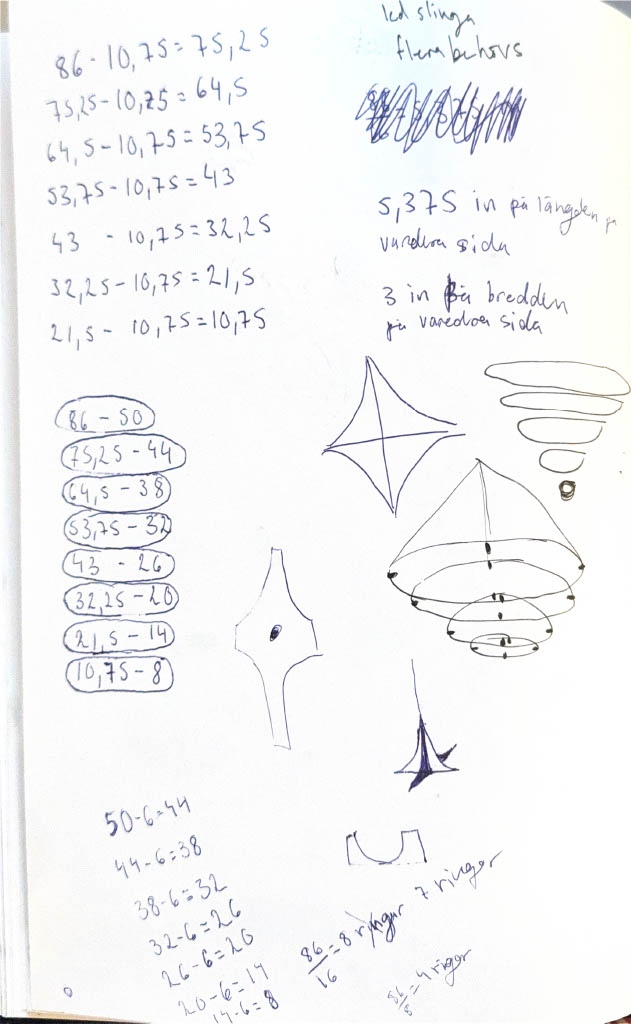 86 - 10,75 = 75,25
75,25 - 10,75 = 64,5
64,5 - 10,75 = 53,75
53,75 - 10,75 = 43
43 - 10,75 = 32,25
32,25 - 10,75 = 21,5
21,5 - 10,75 = 10,75
led slinga
flera behövs
5,375 in på längden på
varedera sida
3 in på bredden
på varedera sida
86 - 50
75,25 - 44
64,5 - 38
53,75 - 32
43 - 26
32,25 - 20
21,5 - 14
10,75 - 8
50-6=44
44-6=38
38-6=32
32-6=26
26-6=20
20-6=14
14-6=8
86/16 = 8 ringar 7 ringar
86/8 = 4 ringar